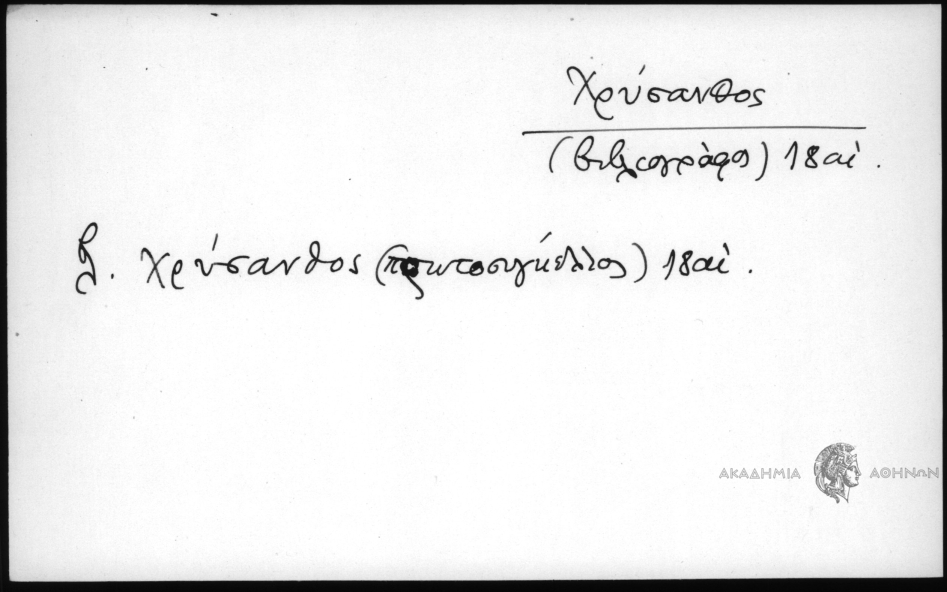 Χρύσανθος
(βιβλιογράφος) 18 αἰ.
β. Χρύσανθος (πρωτοσυγκέλλος) 18 αἰ.
ΑΚΑΔΗΜΙΑ ΑΘΗΝΩΝ